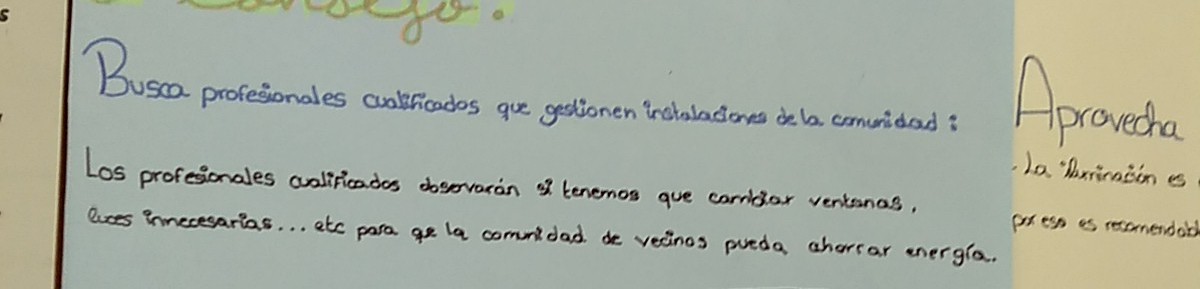 Consejo.
Busca profesionales cualificados que gestionen instalaciones de la comunidad:
Los profesionales cualificados observarán si tenemos que cambiar ventanas,
luces innecesarias... etc para qe la comunidad de vecinos pueda ahorrar energía.
Aprovecha
- La iluminación es
por eso es recomendabl